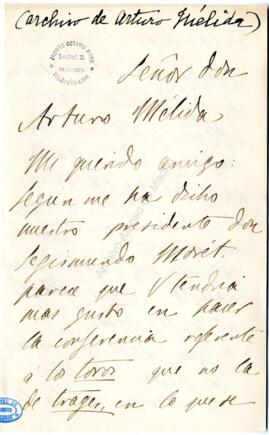 (archivo de Arturo Mélida)
Señor don
Arturo Mélida
Mi querido amigo:
segun me ha dicho
nuestro presidente don
Segismundo Morét.
parece que V tendria
mas gusto en hacer
la conferencia referente
a los toros que no la
de trages, en lo que se